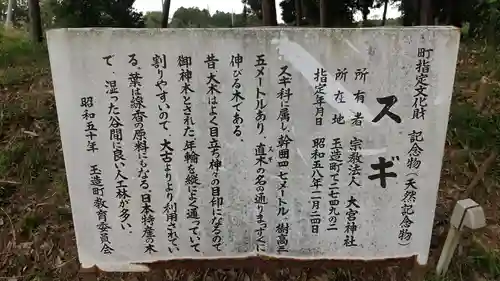 町指定文化財　記念物（天然記念物）
スギ
所有者　宗教法人　大宮神社
所在地　玉造町甲二四九の二
指定年月日　昭和五八年二月二四日
スギ科に属し、幹囲四、七メートル、樹高三
五メートルあり、直木の名の通りまっすぐに
すぎ
伸びる木である。
昔、大木はよく目立ち神々の目印になるので
御神木とされた。年輪を縦によく通っていて
割りやすいので、大古よりより利用されてい
る。葉は線香の原料にもなる。日本特産の木
で、湿った谷間に良い人工林が多い。
昭和五十年　玉造町教育委員会